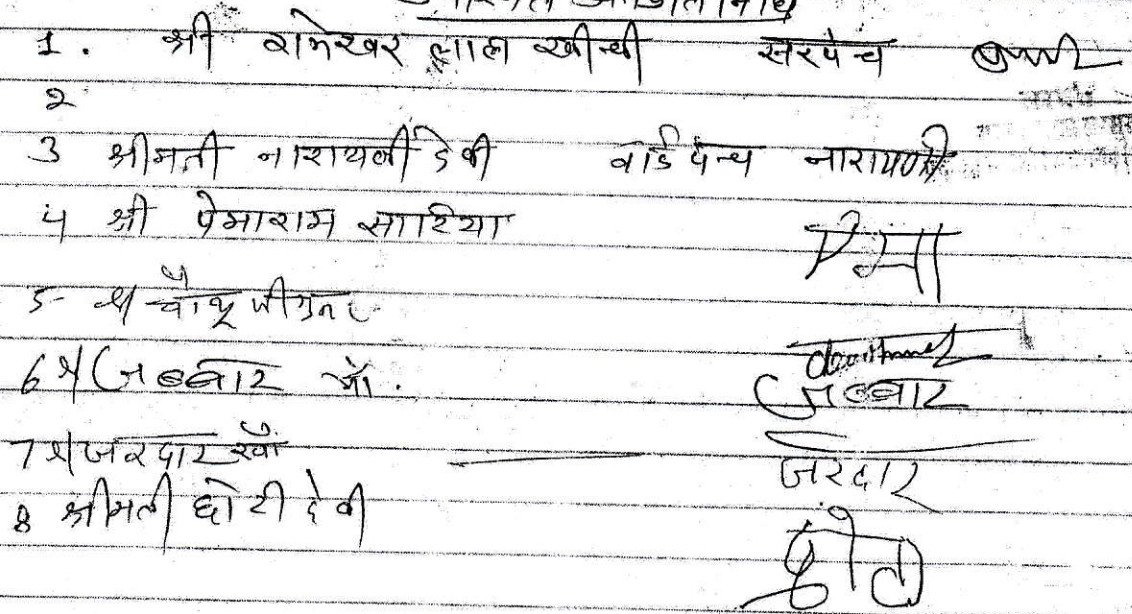 1. श्री रामेश्वर लाल खीची सरपंच
2
3 श्रीमती नारायणी देवी वार्ड पंच नारायणी
4 श्री पेमाराम सारिया पेमा
5- श्री
6 श्री जब्बार खाँ. जब्बार
7 श्री जरदार खाँ जरदार
8 श्रीमती छोटी देवी